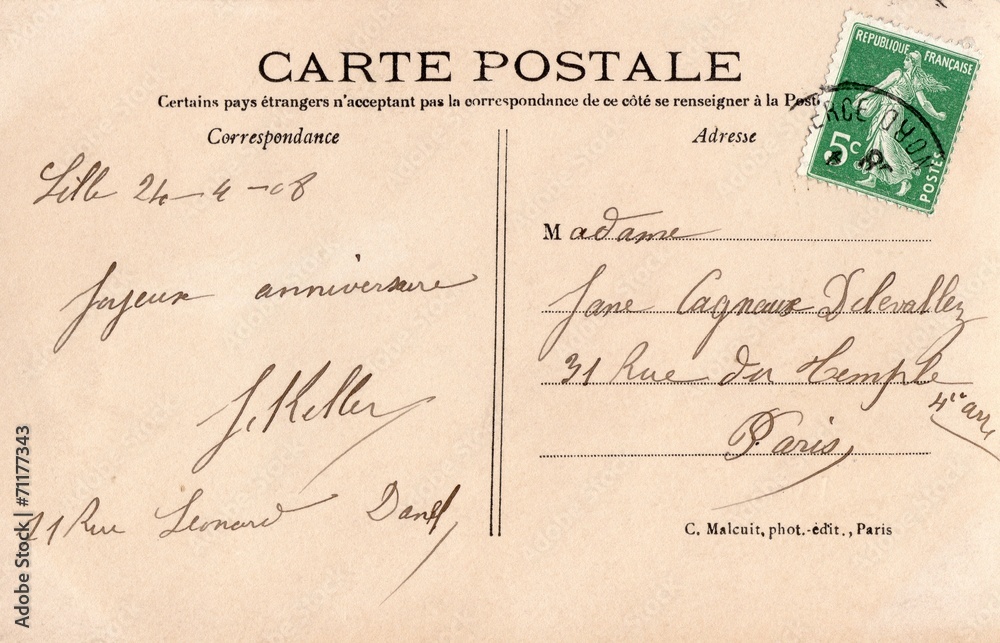 CARTE POSTALE
Certains pays étrangers n'acceptant pas la correspondance de ce côté se renseigner à la Poste
Correspondance
Lille 24-4-08
Joyeux anniversaire
J. Keller
Rue Léonard Danel
Adresse
RÉPUBLIQUE FRANÇAISE
5c
POSTES
NORD
Madame
Jane Cagneaux Delevallez
31 Rue du Temple
4e arr
Paris
C. Malcuit, phot.-édit., Paris
Adobe Stock | #71177343